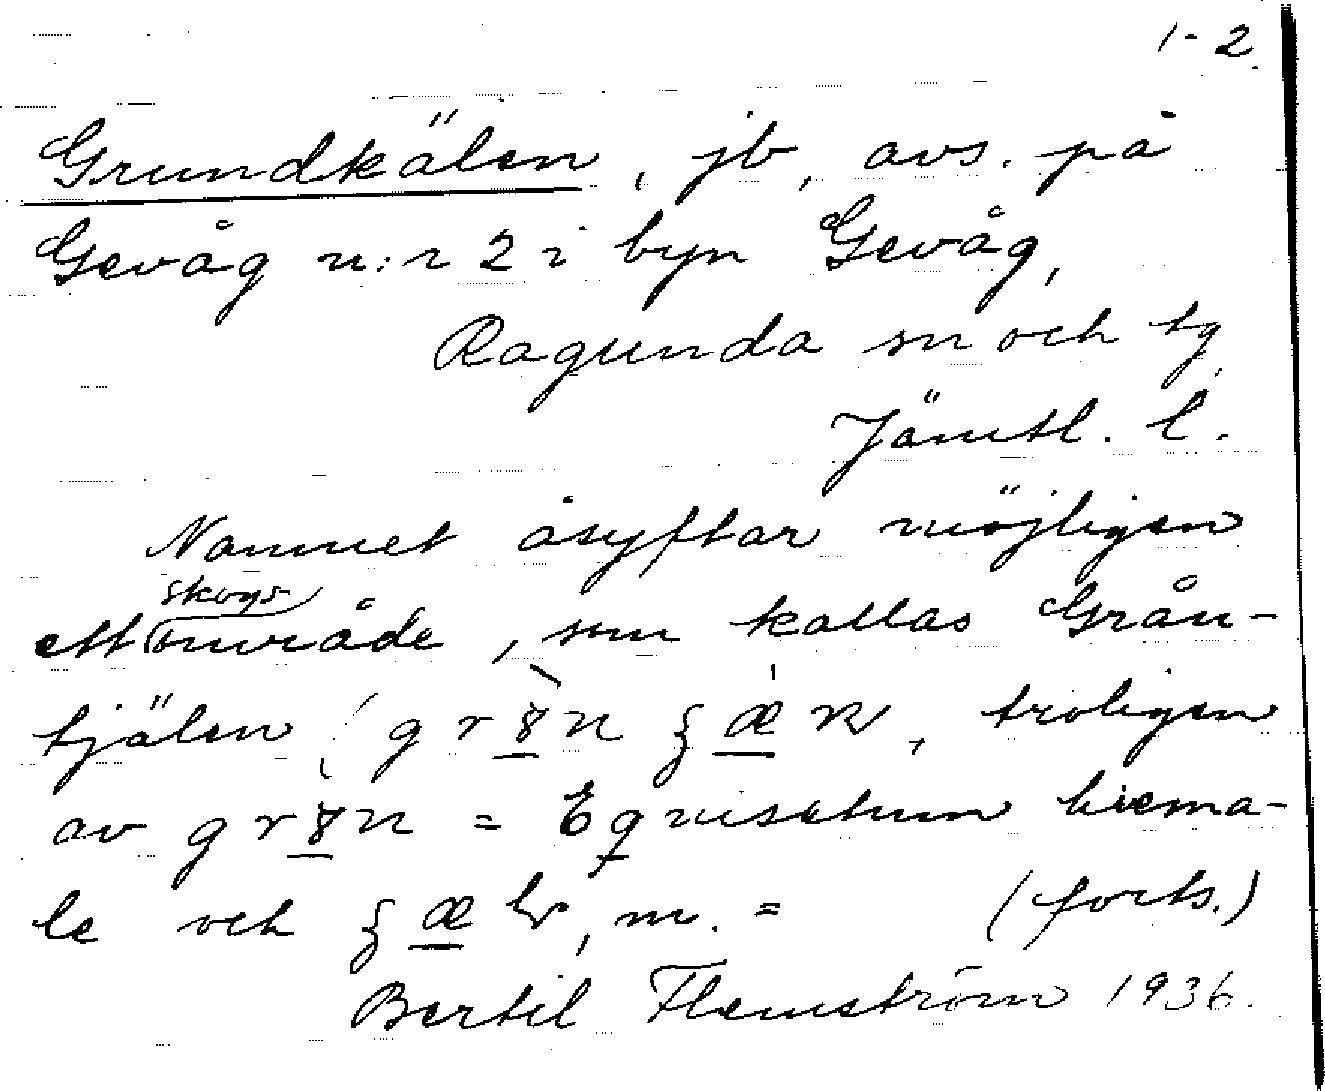 1-2
Grundkälen, jb, avs. på
Gevåg n:r 2 i byn Gevåg,
Ragunda sn och tg
Jämtl. l.
Namnet åsyftar möjligen
ett skogsområde, som kallas Grån-
tjälen troligen
av = Equisetum hiema-
le och m. = (forts.)
Bertil Flemström 1936.